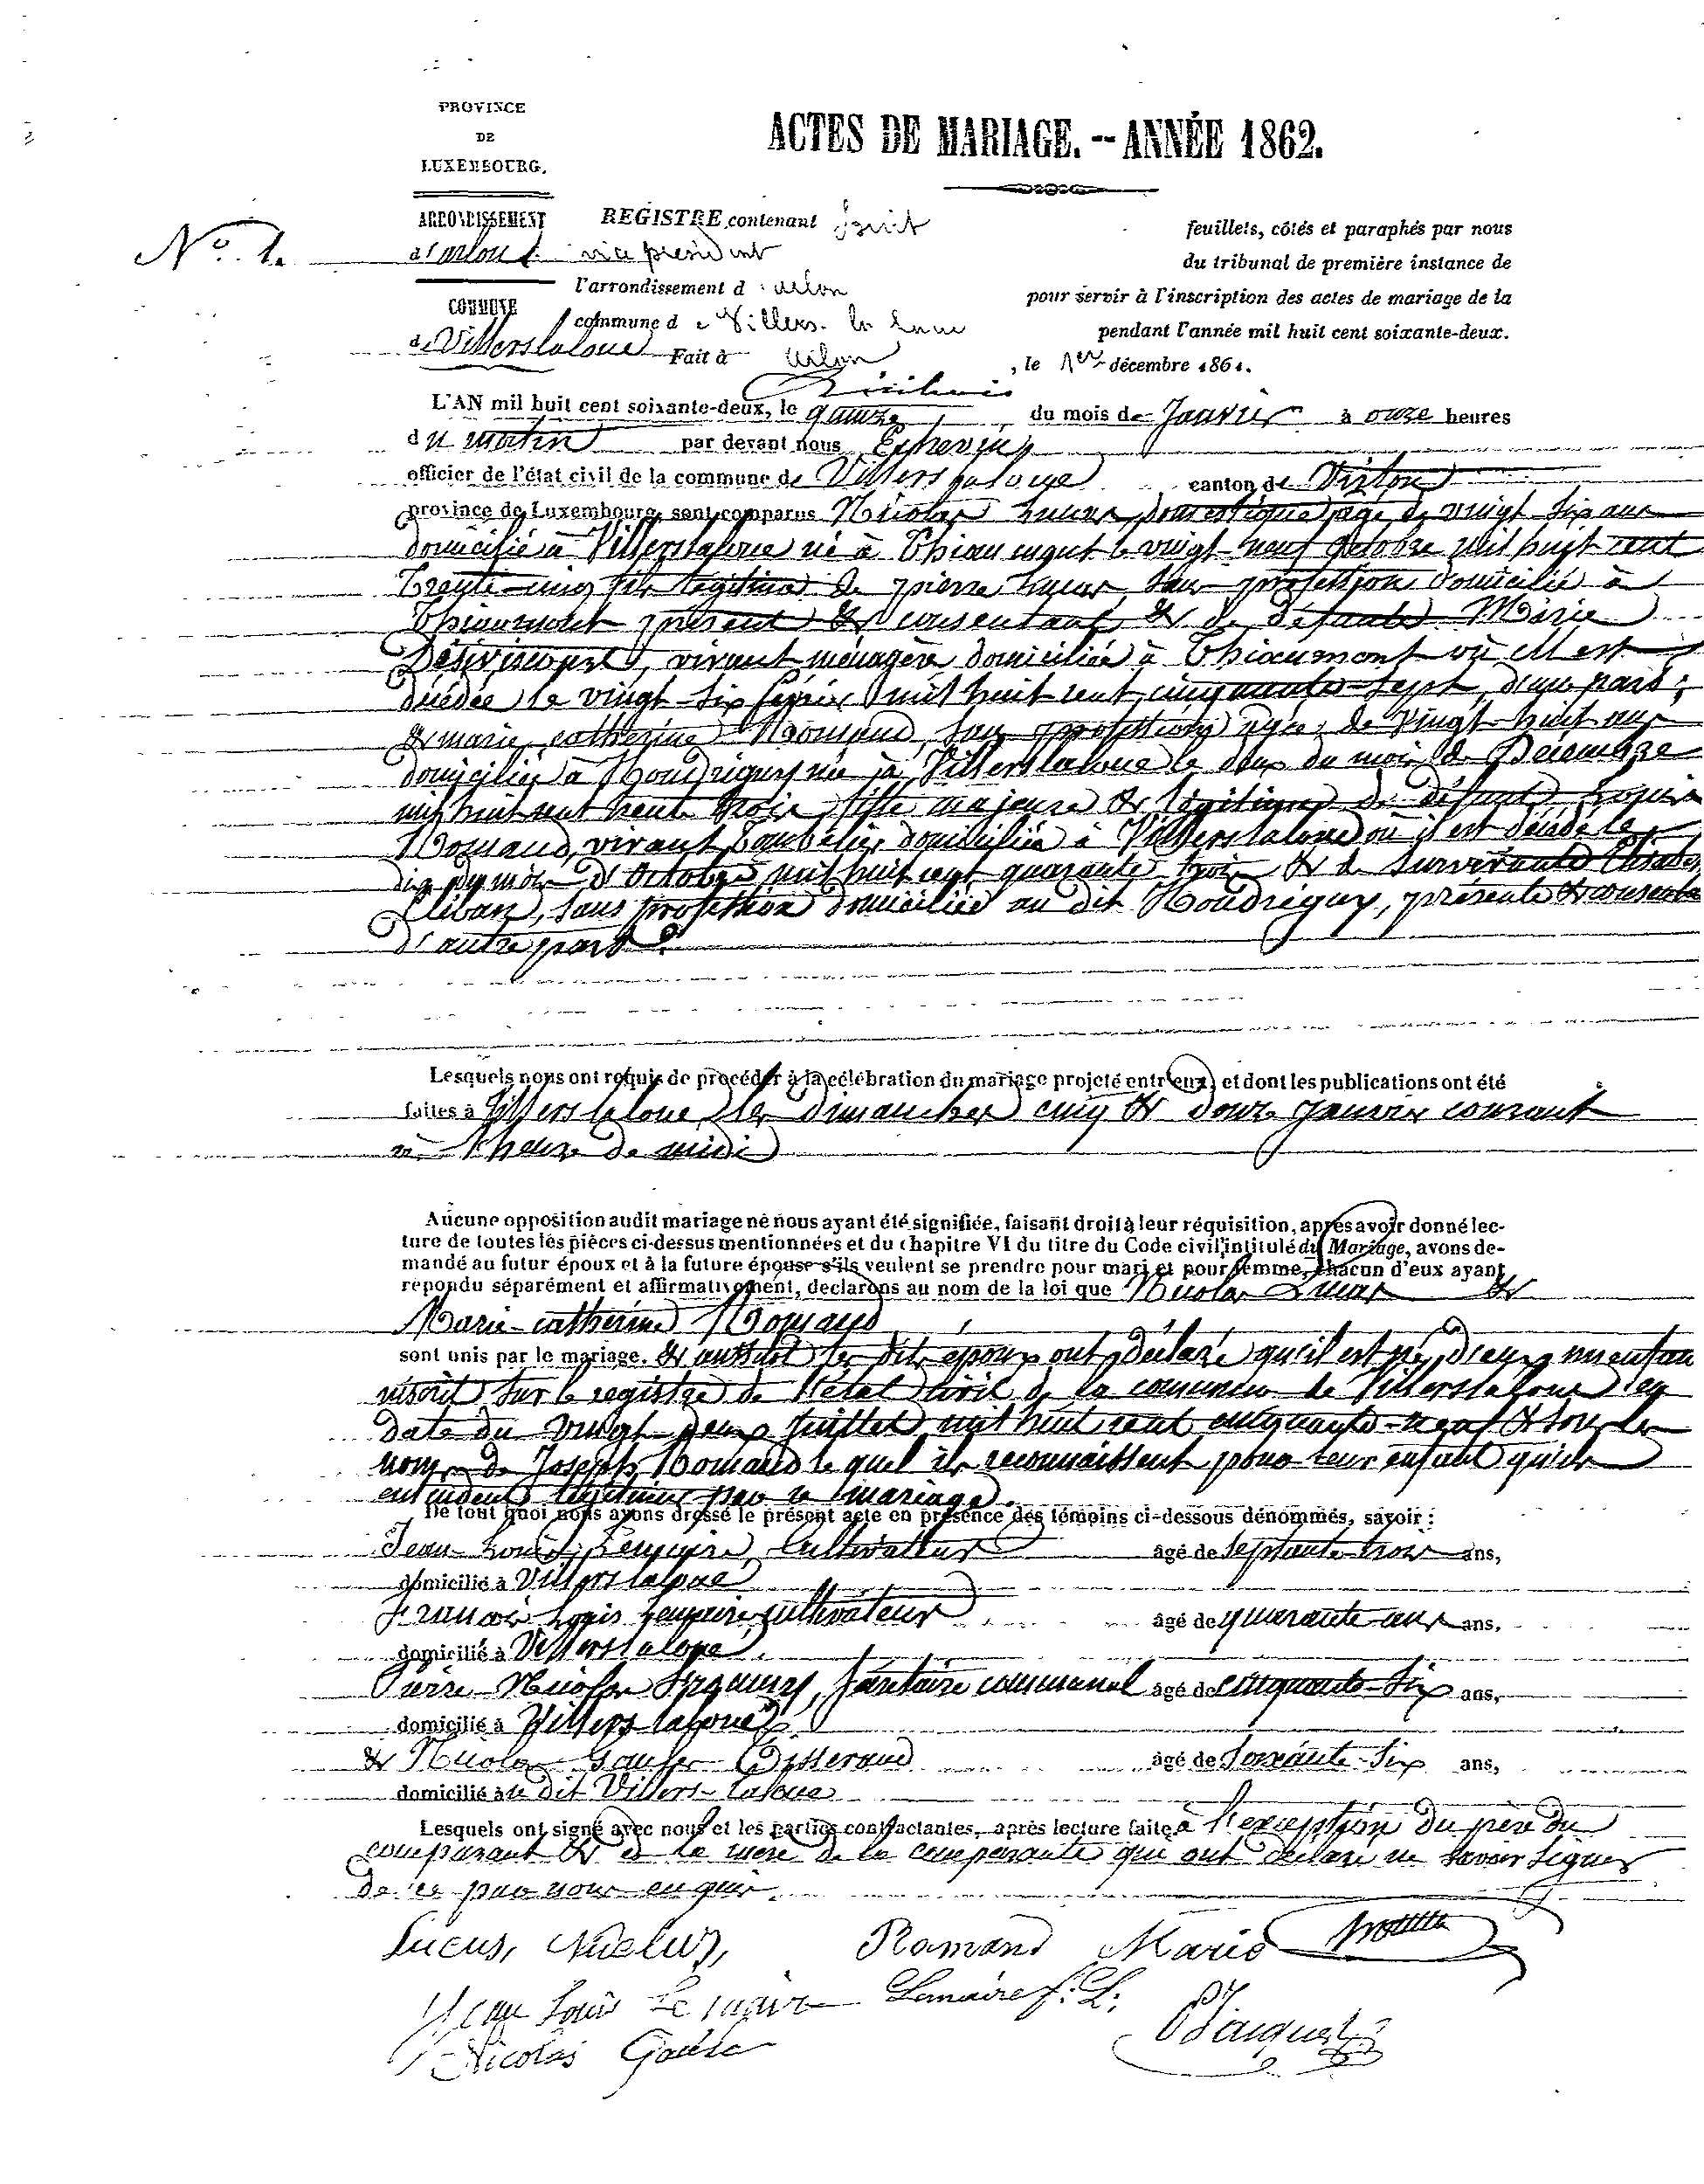 PROVINCE
DE
LUXEMBOURG.
ACTES DE MARIAGE. -- ANNÉE 1862.
No. 1.
ARRONDISSEMENT
d'arlon
COMMUNE
de Villerslaloue
REGISTRE contenant huit feuillets, côtés et paraphés par nous
vice président du tribunal de première instance de
l'arrondissement d'arlon pour servir à l'inscription des actes de mariage de la
commune de Villers-la-Loue pendant l'année mil huit cent soixante-deux.
Fait à Arlon, le 1er décembre 1861.
L'AN mil huit cent soixante-deux, le quinze du mois de Janvier à onze heures
du matin par devant nous Echevin
officier de l'état civil de la commune de Villerslaloue canton de Virton
province de Luxembourg, sont comparus Nicolas Lucas, domestique, agé de vingt six ans
domicilié à Villerslaloue né à Thiaumont le vingt-neuf octobre mil huit cent
trente-cinq fils légitime de pierre Lucas, sans profession domicilié à
Thiaumont présent & consentant & de défunte Marie
, vivant ménagère domiciliée à Thiaumont où ell est
décédée le vingt-six mil huit cent cinquante-sept, d'une part;
& marie catherine Romand, sans profession agée de vingt-huit ans
domiciliée à Houdrigny née à Villerslaloue le deux du mois de Décembre
mil huit cent trente trois, fille majeure & légitime de défunt
Romand, vivant domicilié à Villerslaloue où il est décédé le
dix du mois d'Octobre mil huit cent quarante trois & de survivante
, sans profession domiciliée au dit Houdrigny, présente & consentante
d'autre part.
Lesquels nous ont requis de procéder à la célébration du mariage projeté entr'eux, et dont les publications ont été
faites à Villerslaloue les dimanches cinq & douze Janvier courant
à l'heure de midi
Aucune opposition audit mariage ne nous ayant été signifiée, faisant droit à leur réquisition, après avoir donné lec-
ture de toutes les pièces ci-dessus mentionnées et du chapitre VI du titre du Code civil intitulé du Mariage, avons de-
mandé au futur époux et à la future épouse s'ils veulent se prendre pour mari et pour femme, chacun d'eux ayant
répondu séparément et affirmativement, declarons au nom de la loi que Nicolas Lucas &
Marie-catherine Romand
sont unis par le mariage. & aussitôt les dits époux ont déclaré qu'il est né d'eux un enfant
inscrit sur le registre de l'état civil de la commune de Villerslaloue en
date du vingt-deux juillet mil huit cent cinquante-neuf & sous les
noms de Joseph Romand le quel ils reconnaissent pour leur enfant qu'ils
entendent légitimer par ce mariage.
De tout quoi nous avons dressé le présent acte en présence des témoins ci-dessous dénommés, savoir:
Jean-Louis Lemaire, Cultivateur âgé de septante-trois ans,
domicilié à Villerslaloue
François Louis Lemaire, cultivateur âgé de quarante ans ans,
domicilié à Villerslaloue,
Pierre Nicolas , secrétaire communal âgé de cinquante-six ans,
domicilié à Villerslaloue
& Nicolas Tisserand âgé de soixante-six ans,
domicilié à u dit Villers-laloue
Lesquels ont signé avec nous et les parties contractantes, après lecture faite, à l'exception du père du
comparant & de la mère de la comparante qui ont déclaré ne savoir signer
de ce par nous enquis.
Lucas, Nicolas, Romand Marie
Jean Louis Lemaire Lemaire f: L:
Nicolas